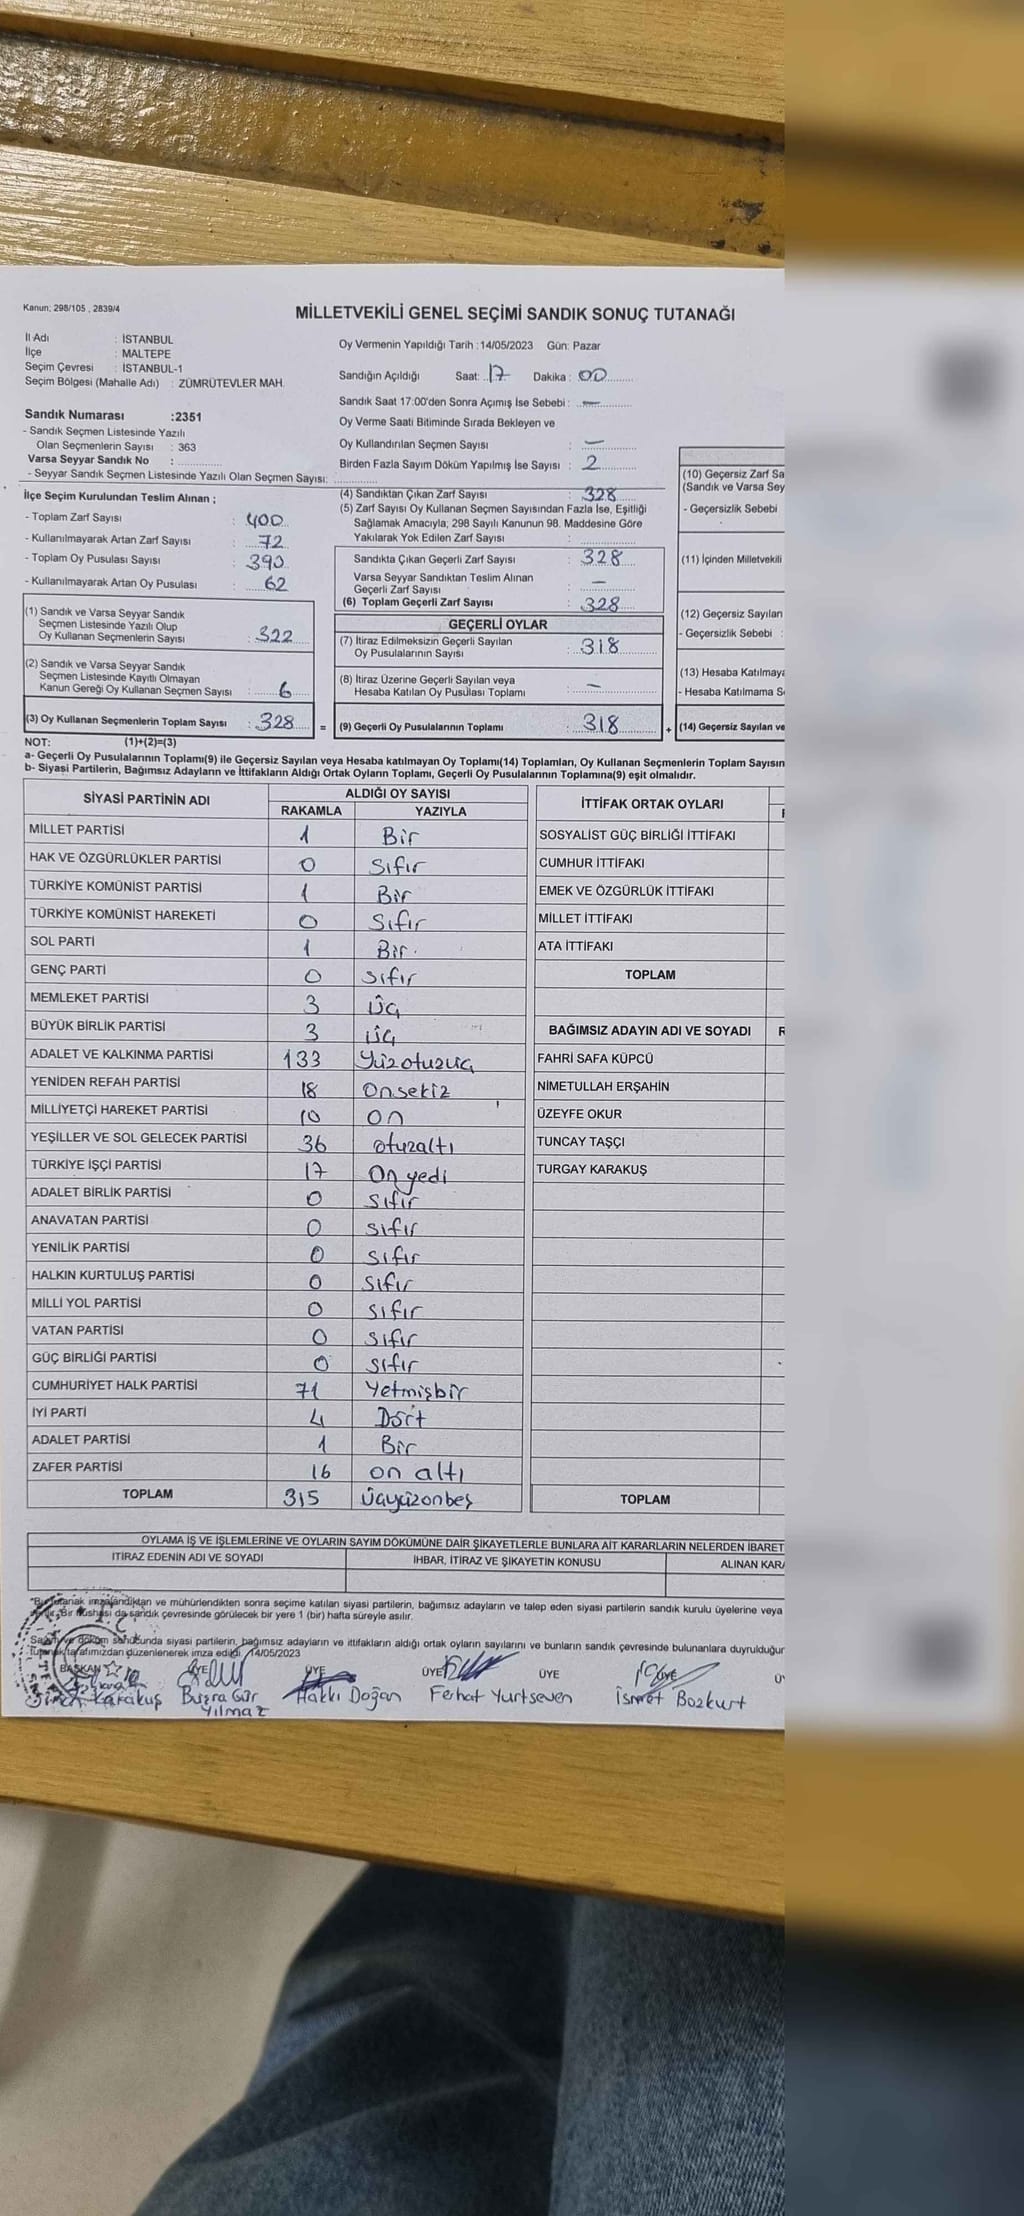 Kanun; 298/105 , 2839/4
MİLLETVEKİLİ GENEL SEÇİMİ SANDIK SONUÇ TUTANAĞI
İl Adı : İSTANBUL
İlçe : MALTEPE
Seçim Çevresi : İSTANBUL-1
Seçim Bölgesi (Mahalle Adı) : ZÜMRÜTEVLER MAH.
Oy Vermenin Yapıldığı Tarih :14/05/2023 Gün: Pazar
Sandığın Açıldığı Saat: 17 Dakika : 00
Sandık Saat 17:00'den Sonra Açımış İse Sebebi : —
Oy Verme Saati Bitiminde Sırada Bekleyen ve
Oy Kullandırılan Seçmen Sayısı : —
Birden Fazla Sayım Döküm Yapılmış İse Sayısı : 2
Sandık Numarası :2351
- Sandık Seçmen Listesinde Yazılı
Olan Seçmenlerin Sayısı : 363
Varsa Seyyar Sandık No :
- Seyyar Sandık Seçmen Listesinde Yazılı Olan Seçmen Sayısı:
İlçe Seçim Kurulundan Teslim Alınan ;
- Toplam Zarf Sayısı : 400
- Kullanılmayarak Artan Zarf Sayısı : 72
- Toplam Oy Pusulası Sayısı : 390
- Kullanılmayarak Artan Oy Pusulası : 62
(1) Sandık ve Varsa Seyyar Sandık
Seçmen Listesinde Yazılı Olup
Oy Kullanan Seçmenlerin Sayısı : 322
(2) Sandık ve Varsa Seyyar Sandık
Seçmen Listesinde Kayıtlı Olmayan
Kanun Gereği Oy Kullanan Seçmen Sayısı : 6
(3) Oy Kullanan Seçmenlerin Toplam Sayısı : 328 =
(4) Sandıktan Çıkan Zarf Sayısı : 328
(5) Zarf Sayısı Oy Kullanan Seçmen Sayısından Fazla İse, Eşitliği
Sağlamak Amacıyla, 298 Sayılı Kanunun 98. Maddesine Göre
Yakılarak Yok Edilen Zarf Sayısı :
Sandıkta Çıkan Geçerli Zarf Sayısı : 328
Varsa Seyyar Sandıktan Teslim Alınan
Geçerli Zarf Sayısı : —
(6) Toplam Geçerli Zarf Sayısı : 328
GEÇERLİ OYLAR
(7) İtiraz Edilmeksizin Geçerli Sayılan
Oy Pusulalarının Sayısı : 318
(8) İtiraz Üzerine Geçerli Sayılan veya
Hesaba Katılan Oy Pusulası Toplamı : —
(9) Geçerli Oy Pusulalarının Toplamı : 318 +
(10) Geçersiz Zarf Sa
(Sandık ve Varsa Sey
- Geçersizlik Sebebi
(11) İçinden Milletvekili
(12) Geçersiz Sayılan
- Geçersizlik Sebebi :
(13) Hesaba Katılmaya
- Hesaba Katılmama S
(14) Geçersiz Sayılan ve
NOT: (1)+(2)=(3)
a- Geçerli Oy Pusulalarının Toplamı(9) ile Geçersiz Sayılan veya Hesaba katılmayan Oy Toplamı(14) Toplamları, Oy Kullanan Seçmenlerin Toplam Sayısın
b- Siyasi Partilerin, Bağımsız Adayların ve İttifakların Aldığı Ortak Oyların Toplamı, Geçerli Oy Pusulalarının Toplamına(9) eşit olmalıdır.
SİYASİ PARTİNİN ADI ALDIĞI OY SAYISI
RAKAMLA YAZIYLA
MİLLET PARTİSİ 1 Bir
HAK VE ÖZGÜRLÜKLER PARTİSİ 0 Sıfır
TÜRKİYE KOMÜNİST PARTİSİ 1 Bir
TÜRKİYE KOMÜNİST HAREKETİ 0 Sıfır
SOL PARTİ 1 Bir
GENÇ PARTİ 0 Sıfır
MEMLEKET PARTİSİ 3 Üç
BÜYÜK BİRLİK PARTİSİ 3 üç
ADALET VE KALKINMA PARTİSİ 133 Yüzotuzüç
YENİDEN REFAH PARTİSİ 18 Onsekiz
MİLLİYETÇİ HAREKET PARTİSİ 10 On
YEŞİLLER VE SOL GELECEK PARTİSİ 36 otuzaltı
TÜRKİYE İŞÇİ PARTİSİ 17 On yedi
ADALET BİRLİK PARTİSİ 0 Sıfır
ANAVATAN PARTİSİ 0 Sıfır
YENİLİK PARTİSİ 0 Sıfır
HALKIN KURTULUŞ PARTİSİ 0 Sıfır
MİLLİ YOL PARTİSİ 0 Sıfır
VATAN PARTİSİ 0 Sıfır
GÜÇ BİRLİĞİ PARTİSİ 0 Sıfır
CUMHURİYET HALK PARTİSİ 71 Yetmişbir
İYİ PARTİ 4 Dört
ADALET PARTİSİ 1 Bir
ZAFER PARTİSİ 16 on altı
TOPLAM 315 Üçyüzonbeş
İTTİFAK ORTAK OYLARI
SOSYALİST GÜÇ BİRLİĞİ İTTİFAKI
CUMHUR İTTİFAKI
EMEK VE ÖZGÜRLÜK İTTİFAKI
MİLLET İTTİFAKI
ATA İTTİFAKI
TOPLAM
BAĞIMSIZ ADAYIN ADI VE SOYADI
FAHRİ SAFA KÜPCÜ
NİMETULLAH ERŞAHİN
ÜZEYFE OKUR
TUNCAY TAŞÇI
TURGAY KARAKUŞ
TOPLAM
OYLAMA İŞ VE İŞLEMLERİNE VE OYLARIN SAYIM DÖKÜMÜNE DAİR ŞİKAYETLERLE BUNLARA AİT KARARLARIN NELERDEN İBARET
İTİRAZ EDENİN ADI VE SOYADI İHBAR, İTİRAZ VE ŞİKAYETİN KONUSU ALINAN KARA
*Bu tutanak imzalandıktan ve mühürlendikten sonra seçime katılan siyasi partilerin, bağımsız adayların ve talep eden siyasi partilerin sandık kurulu üyelerine veya
Bir nüshası da sandık çevresinde görülecek bir yere 1 (bir) hafta süreyle asılır.
Sayım ve döküm sonucunda siyasi partilerin, bağımsız adayların ve ittifakların aldığı ortak oyların sayılarını ve bunların sandık çevresinde bulunanlara duyrulduğur
tutanak tarafımızdan düzenlenerek imza edildi. 14/05/2023
BAŞKAN ÜYE ÜYE ÜYE ÜYE ÜYE
Karakuş Buşra Gür Hakkı Doğan Ferhat Yurtseven İsmet Bozkurt
Yılmaz